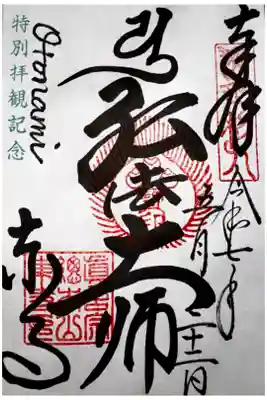 奉拝
令和七年
五月二十二日
弘法大師
東寺
Otonami
特別拝観記念